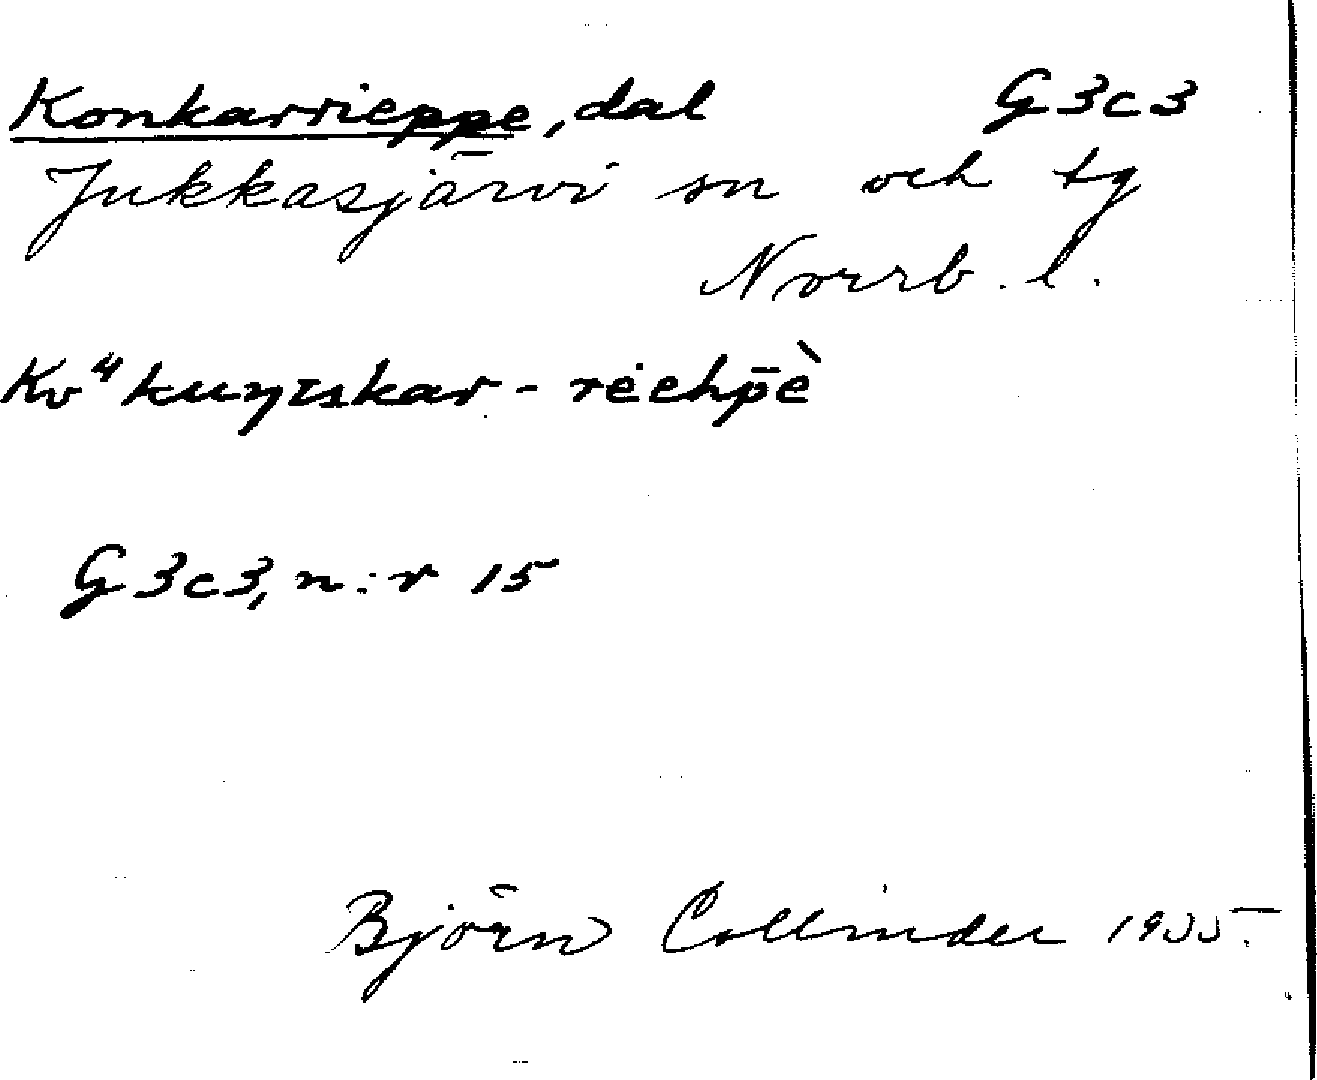 Konkarrieppe, dal G3c3
Jukkasjärvi sn och tg
Norrb. l.
G3c3, n:r 15
Björn Collinder 1935.